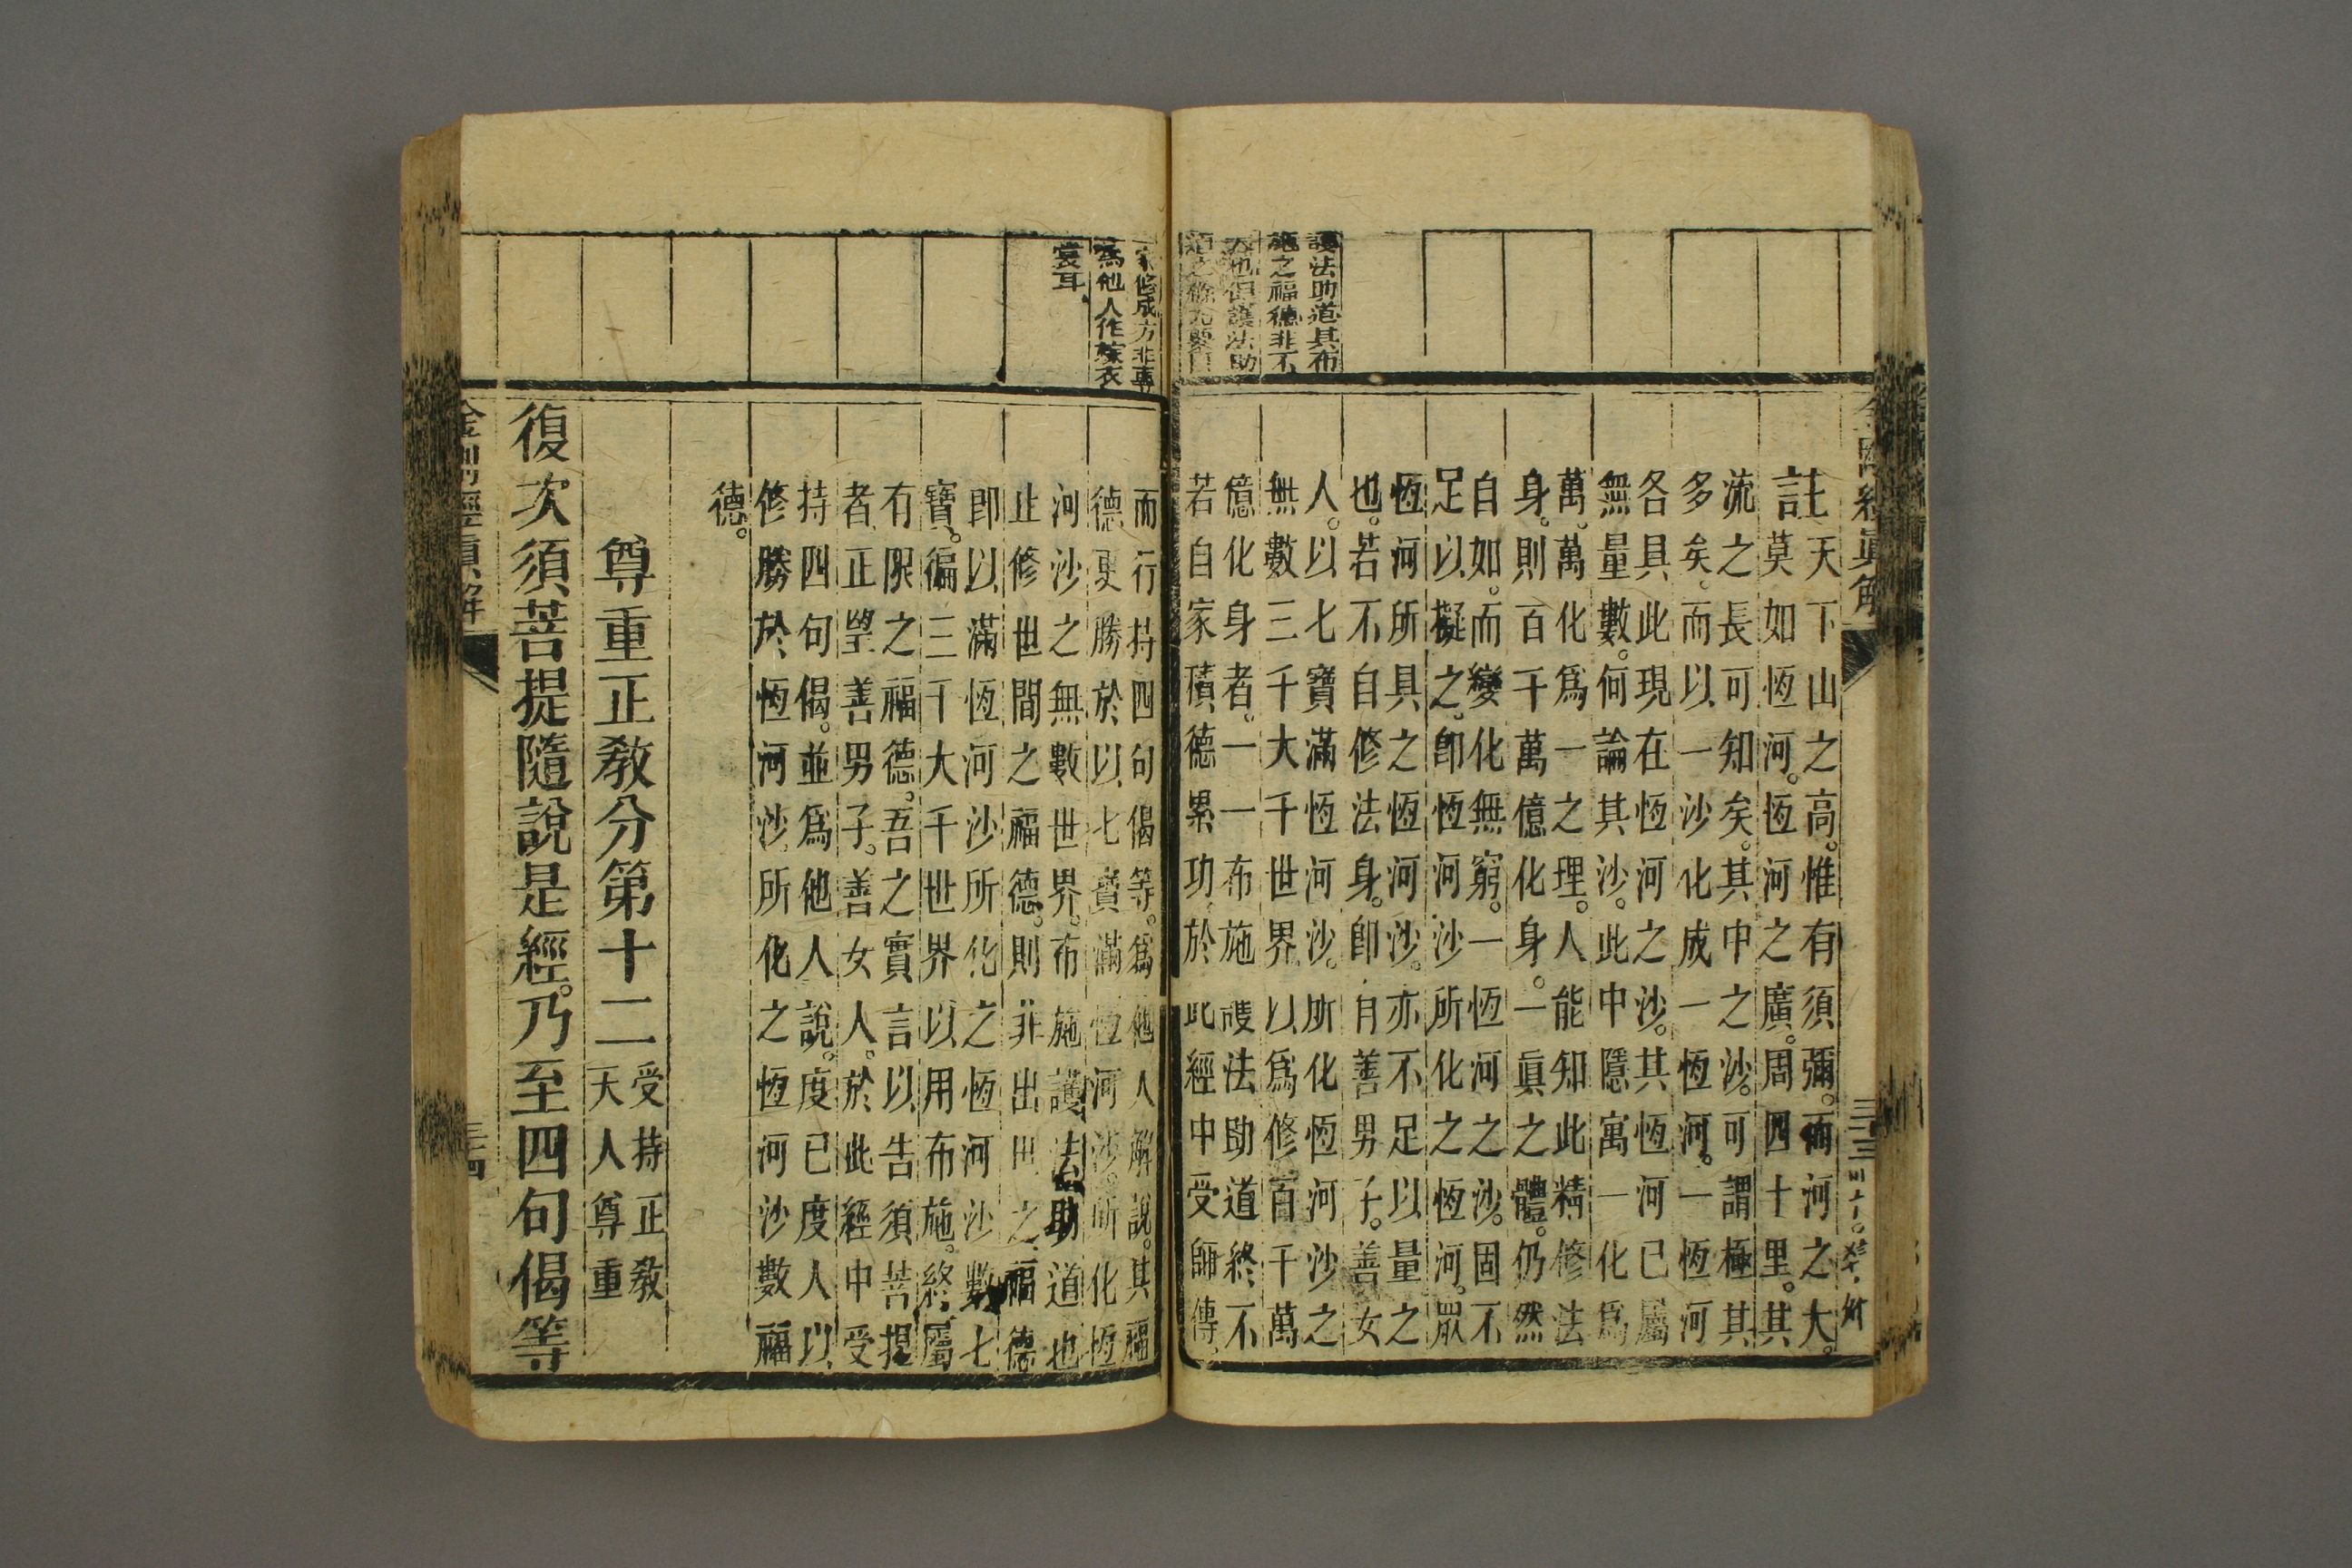 護法助道其布
施之福德非不
大也但護法助
金剛經眞解
三十三
註天下山之高。惟有須彌。而河之大。
莫如恆河。恆河之廣。周四十里。其
流之長可知矣。其中之沙。可謂極其
多矣。而以一沙化成一恆河。一恆河
各具此現在恆河之沙。其恆河已屬
無量數。何論其沙。此中隱寓一化爲
萬。萬化爲一之理。人能知此精修法
身。則百千萬億化身。一眞之體。仍然
自如。而變化無窮。一恆河之沙。固不
足以擬之。卽恆河沙所化之恆河。眾
恆河所具之恆河沙。亦不足以量之
也。若不自修法身。卽有善男子。善女
人。以七寶滿恆河沙。所化恆河沙之
無數三千大千世界。以爲修百千萬
億化身者。一一布施護法助道終不
若自家積德累功。於此經中受師傳。
家修成方非專
爲他人作嫁衣
裳耳
而行持四句偈等。爲他人解說。其福
德更勝於以七寶滿恆河沙。所化恆
河沙之無數世界。布施護法助道也
止修世間之福德。則非出世之福德。
卽以滿恆河沙所化之恆河沙數七
寶。徧三千大千世界以用布施。終屬
有限之福德。吾之實言以告須菩提
者正望善男子。善女人。於此經中受
持四句偈。並爲他人說。度已度人以
修勝於恆河沙所化之恆河沙數福
德。
尊重正教分第十二 受持正教
天人尊重
復次須菩提隨說是經。乃至四句偈等
金剛經眞解
三十四